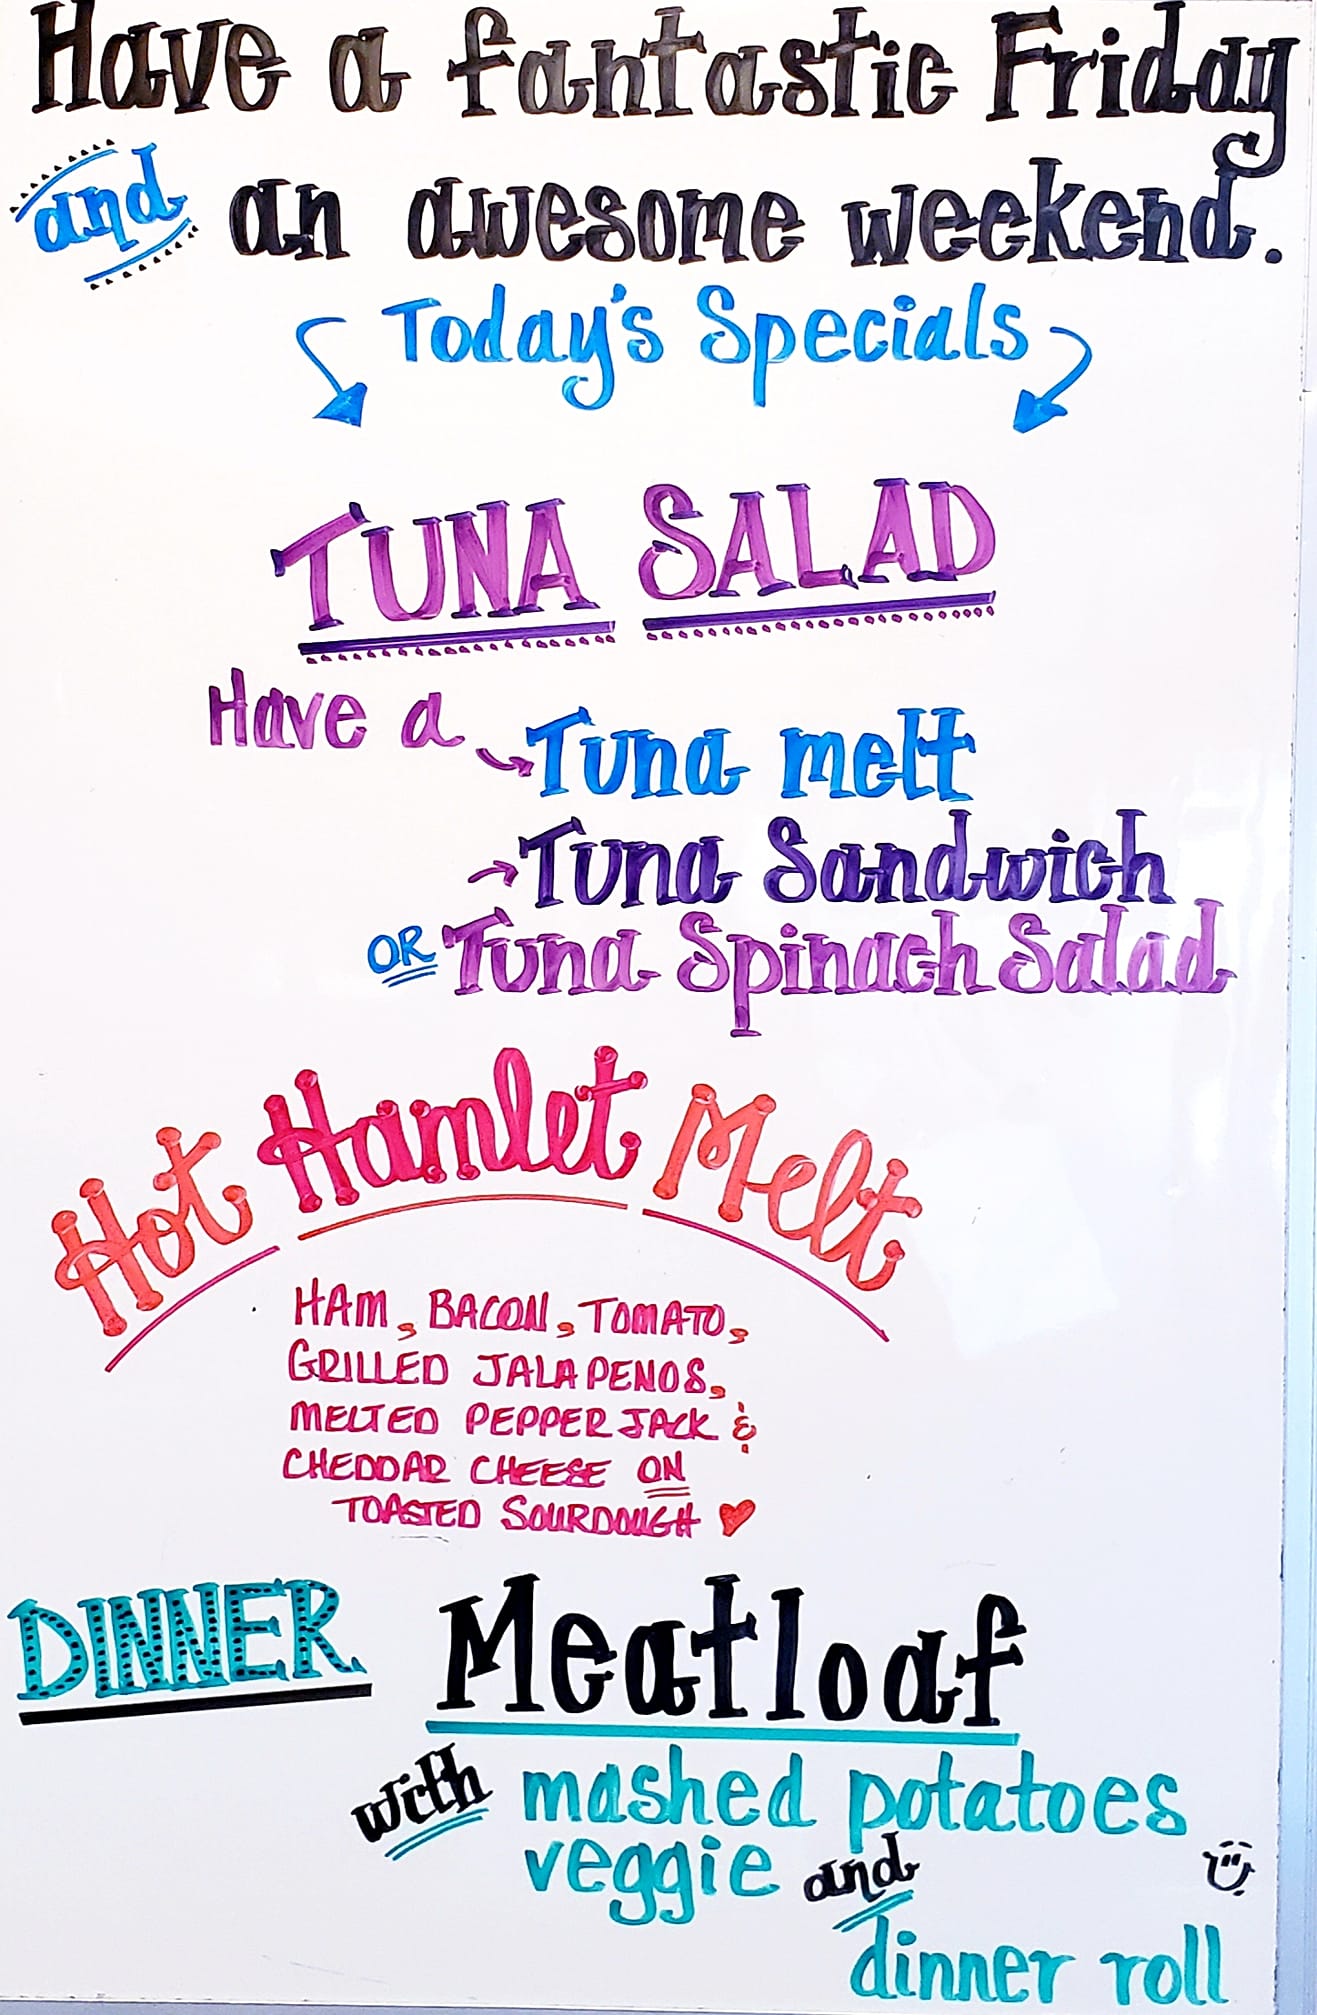 Have a fantastic Friday
and an awesome weekend.
Today's Specials
TUNA SALAD
Have a
Tuna melt
Tuna Sandwich
OR Tuna Spinach Salad
Hot Hamlet Melt
HAM, BACON, TOMATO,
GRILLED JALAPENOS,
MELTED PEPPER JACK &
CHEDDAR CHEESE ON
TOASTED SOURDOUGH
DINNER Meatloaf
with mashed potatoes
veggie and
dinner roll